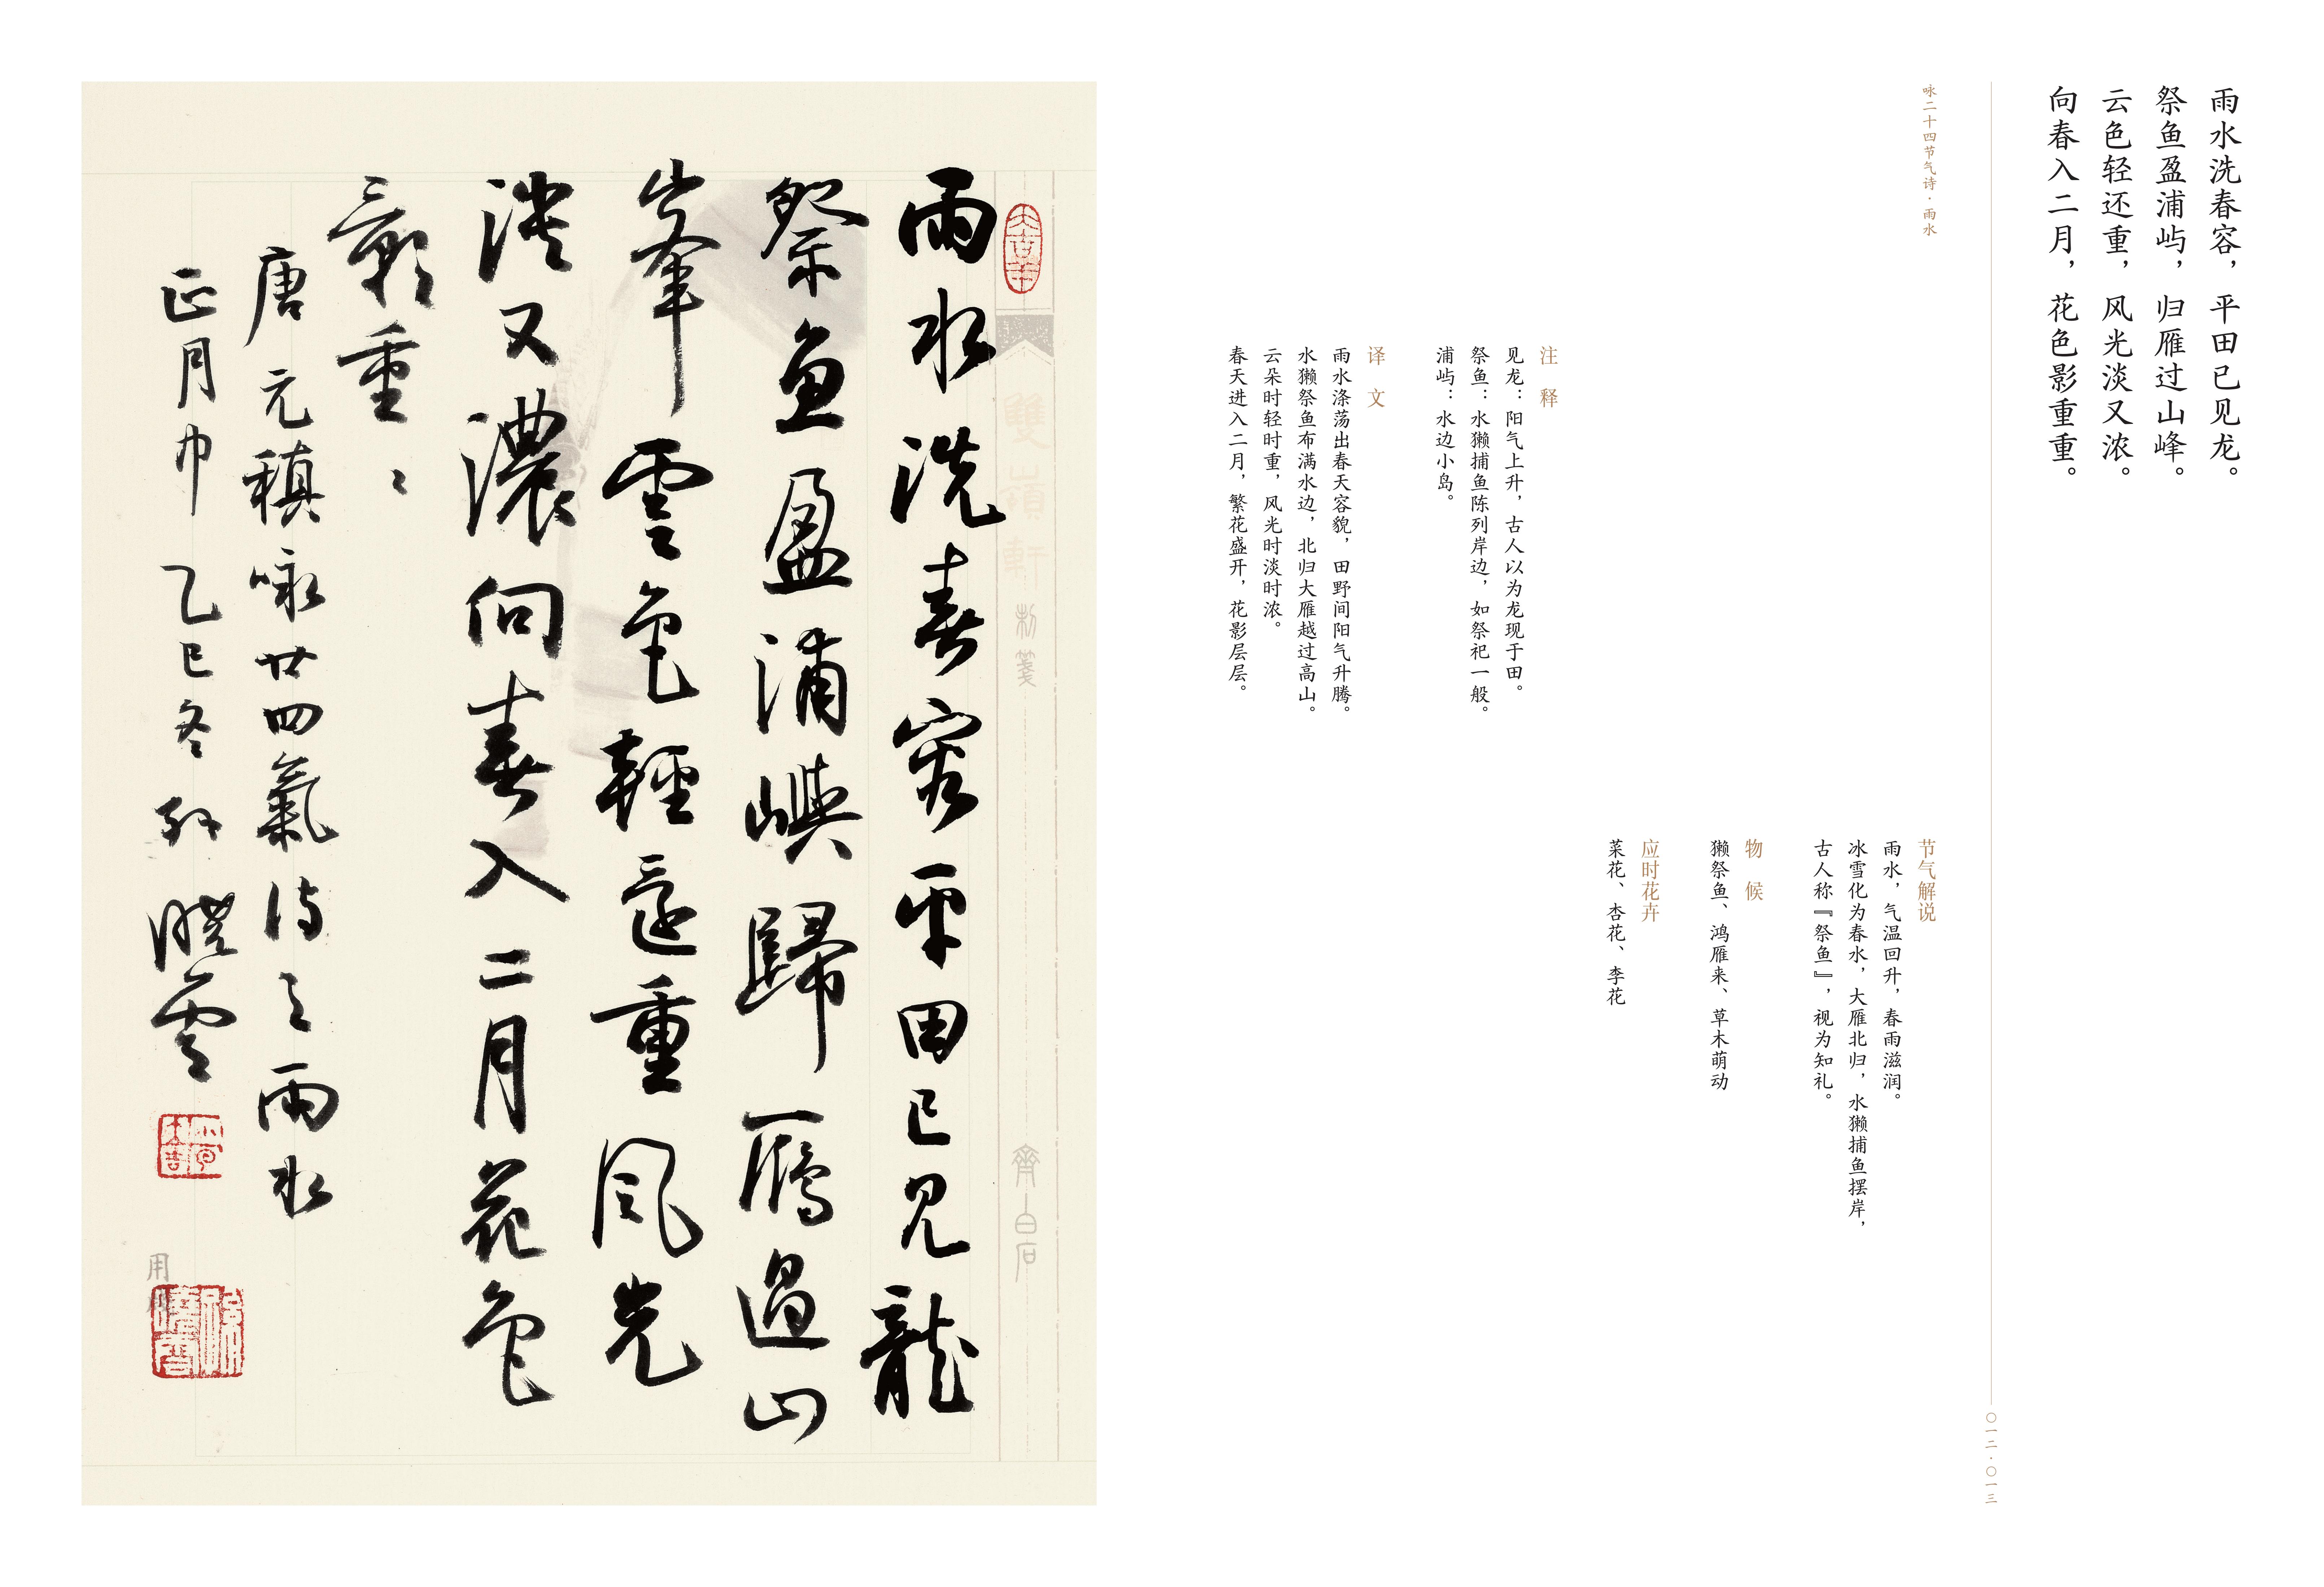 雨水洗春容，平田已见龙。
祭鱼盈浦屿，归雁过山峰。
云色轻还重，风光淡又浓。
向春入二月，花色影重重。
咏二十四节气诗·雨水
节气解说
雨水，气温回升，春雨滋润。
冰雪化为春水，大雁北归，水獭捕鱼摆岸，
古人称『祭鱼』，视为知礼。
物候
獭祭鱼、鸿雁来、草木萌动
应时花卉
菜花、杏花、李花
注释
见龙：阳气上升，古人以为龙现于田。
祭鱼：水獭捕鱼陈列岸边，如祭祀一般。
浦屿：水边小岛。
译文
雨水涤荡出春天容貌，田野间阳气升腾。
水獭祭鱼布满水边，北归大雁越过高山。
云朵时轻时重，风光时淡时浓。
春天进入二月，繁花盛开，花影层层。
〇一二·〇一三
大吉羊
雙嶺軒制箋
齊白石
雨水洗春容平田已見龍
祭魚盈浦嶼歸雁過山
峯雲色輕還重風光
淡又濃向春入二月花色
影重〻
唐元稹咏廿四氣詩之雨水
正月中乙巳冬孫曉雲
用